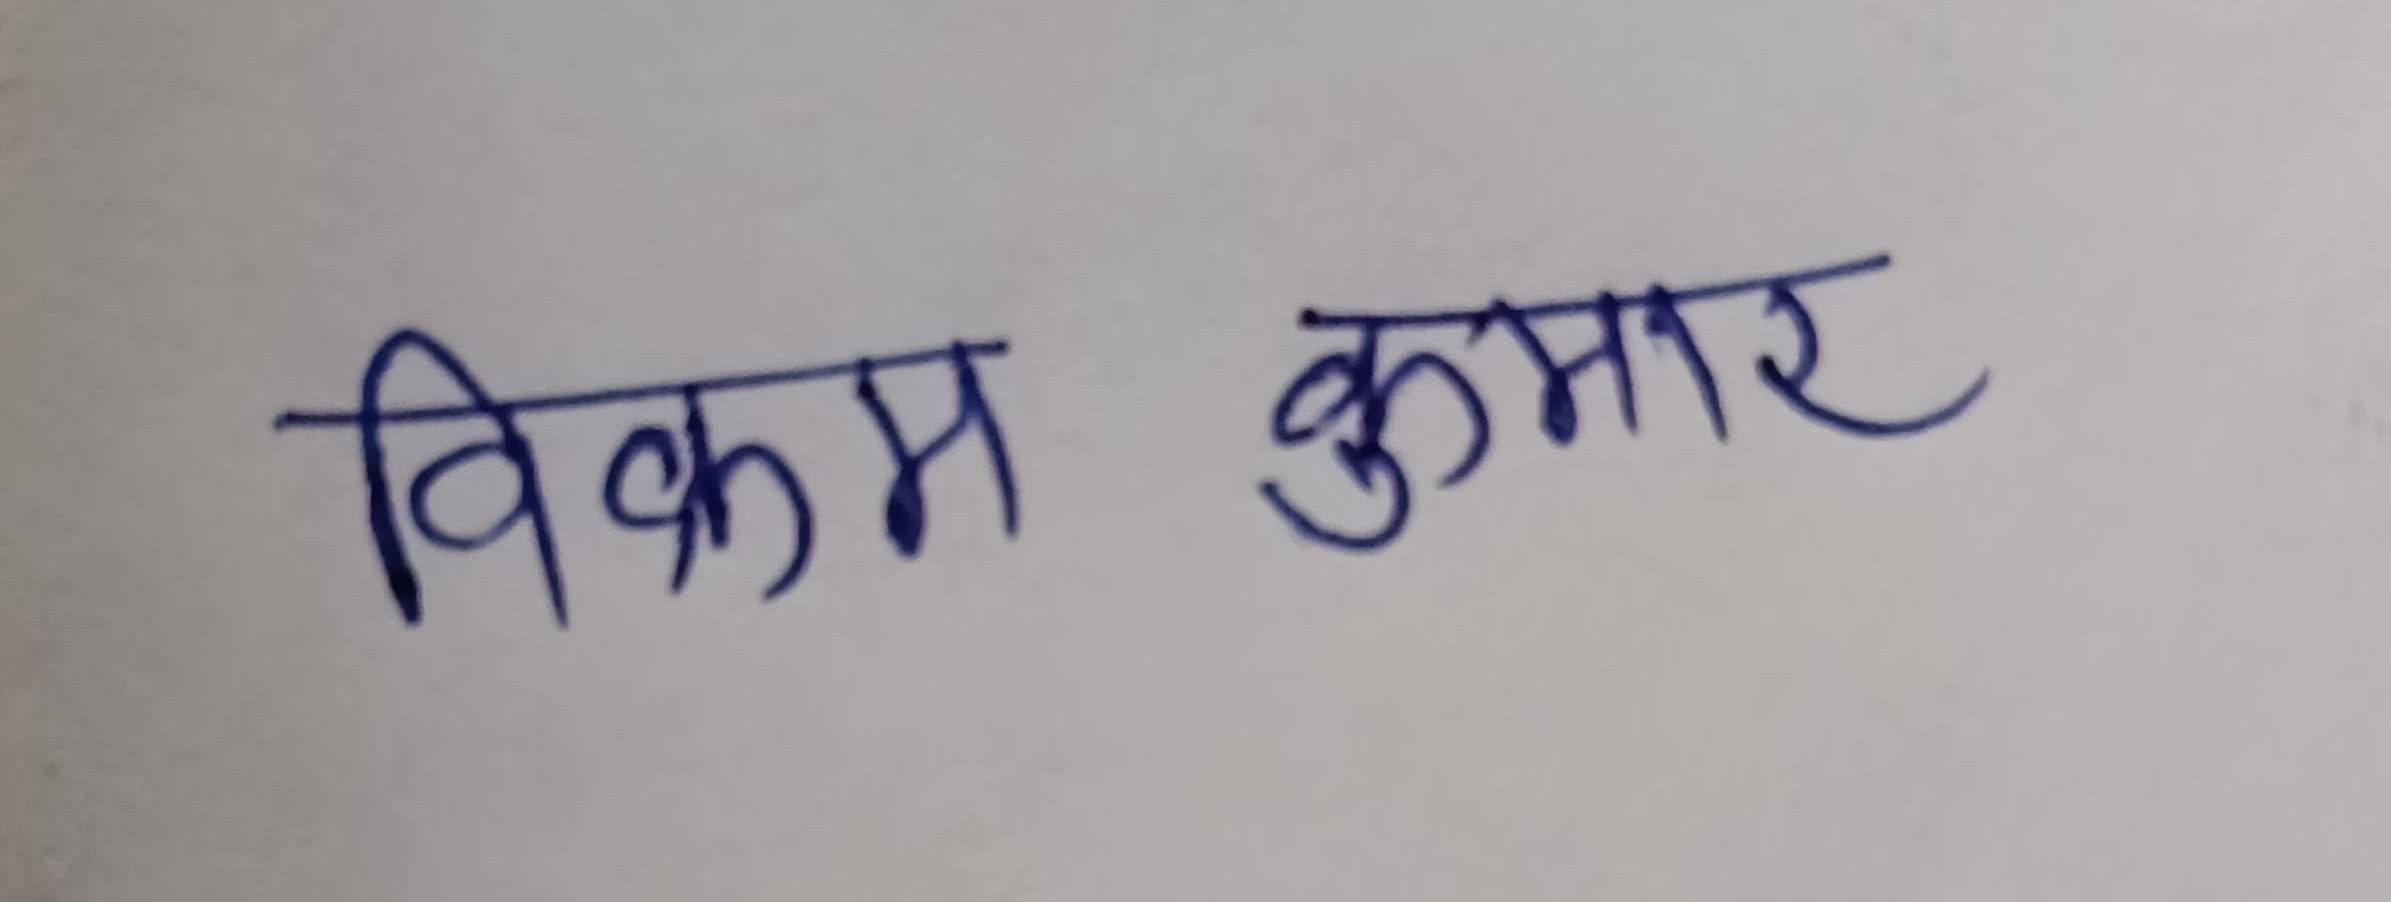 विक्रम कुमार